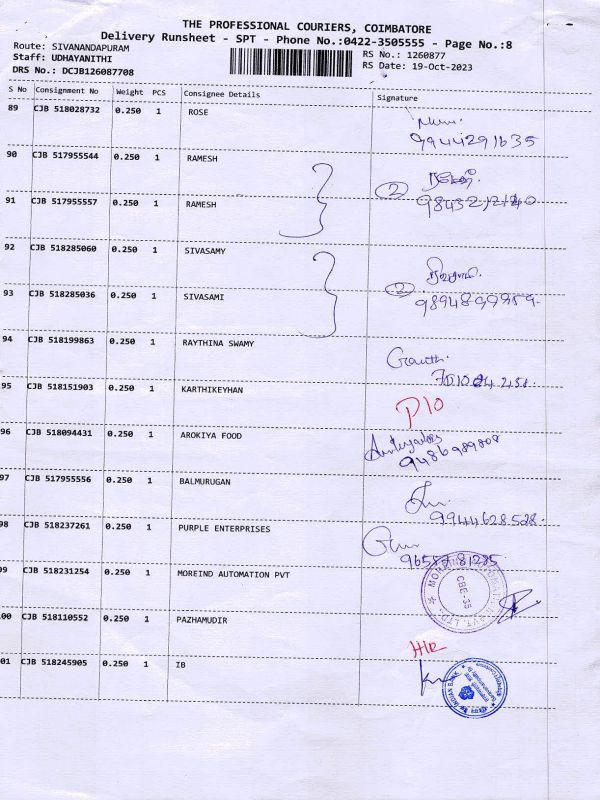 THE PROFESSIONAL COURIERS, COIMBATORE
Delivery Runsheet - SPT - Phone No.:0422-3505555 - Page No.:8
Route: SIVANANDAPURAM
Staff: UDHAYANITHI
DRS No.: DCJB126087708
RS No.: 1260877
RS Date: 19-Oct-2023
S No Consignment No Weight PCS Consignee Details Signature
89 CJB 518028732 0.250 1 ROSE
9944291635
90 CJB 517955544 0.250 1 RAMESH
2
91 CJB 517955557 0.250 1 RAMESH
92 CJB 518285060 0.250 1 SIVASAMY
2
93 CJB 518285036 0.250 1 SIVASAMI
94 CJB 518199863 0.250 1 RAYTHINA SWAMY
95 CJB 518151903 0.250 1 KARTHIKEYHAN
96 CJB 518094431 0.250 1 AROKIYA FOOD
9486989808
97 CJB 517955556 0.250 1 BALMURUGAN
9944628528
98 CJB 518237261 0.250 1 PURPLE ENTERPRISES
99 CJB 518231254 0.250 1 MOREIND AUTOMATION PVT
CBE-35
00 CJB 518110552 0.250 1 PAZHAMUDIR
01 CJB 518245905 0.250 1 IB
INDIAN BANK